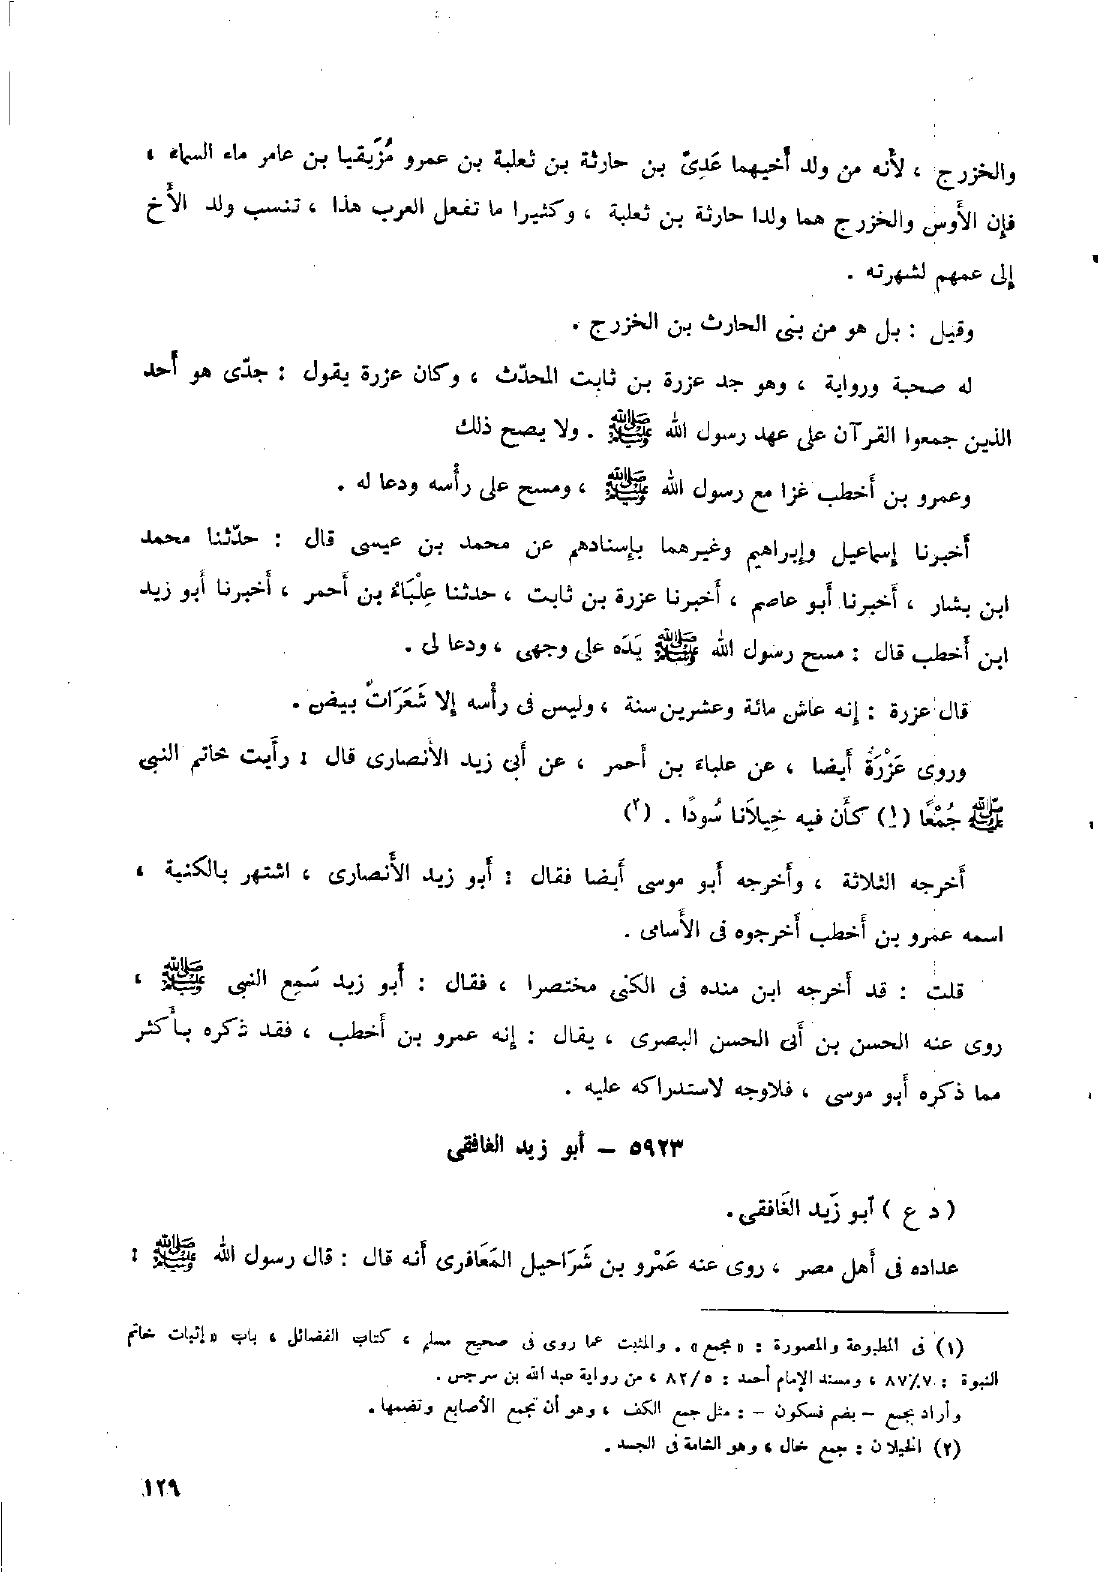 والخزرج ، لأنه من ولد أخيهما عَدِىّ بن حارثة بن ثعلبة بن عمرو مُزَيقيا بن عامر ماء السماء ،
فإن الأوس والخزرج هما ولدا حارثة بن ثعلبة ، وكثيرا ما تفعل العرب هذا ، تنسب ولد الأخ
إلى عمهم لشهرته .
وقيل : بل هو من بنى الحارث بن الخزرج .
له صحبة ورواية ، وهو جد عزرة بن ثابت المحدّث ، وكان عزرة يقول : جدّى هو أحد
الذين جمعوا القرآن على عهد رسول الله ﷺ . ولا يصح ذلك
وعمرو بن أخطب غزا مع رسول الله ﷺ ، ومسح على رأسه ودعا له .
أخبرنا إسماعيل وإبراهيم وغيرهما بإسنادهم عن محمد بن عيسى قال : حدّثنا محمد
ابن بشار ، أخبرنا أبو عاصم ، أخبرنا عزرة بن ثابت ، حدثنا عِلْبَاءُ بن أحمر ، أخبرنا أبو زيد
ابن أخطب قال : مسح رسول الله ﷺ يَدَه على وجهى ، ودعا لى .
قال عزرة : إنه عاش مائة وعشرين سنة ، وليس فى رأسه إلا شَعَرَاتٌ بيض .
وروى عَزْرَةُ أيضا ، عن علباء بن أحمر ، عن أبى زيد الأنصارى قال : رأيت خاتم النبى
ﷺ جُمْعًا (١) كأن فيه خِيلاَنا سُودًا . (٢)
أخرجه الثلاثة ، وأخرجه أبو موسى أيضا فقال : أبو زيد الأنصارى ، اشتهر بالكنية ،
اسمه عمرو بن أخطب أخرجوه فى الأسامى .
قلت : قد أخرجه ابن منده فى الكنى مختصرا ، فقال : أبو زيد سَمِع النبى ﷺ ،
روى عنه الحسن بن أبى الحسن البصرى ، يقال : إنه عمرو بن أخطب ، فقد ذكره بأكثر
مما ذكره أبو موسى ، فلاوجه لاستدراكه عليه .
٥٩٢٣ – أبو زيد الغافقى
( د ع ) أبو زَيد الغَافقى .
عداده فى أهل مصر ، روى عنه عَمْرو بن شَرَاحيل المَعَافرى أنه قال : قال رسول الله ﷺ :
(١) فى المطبوعة والمصورة : « مجمع » . والمثبت عما روى فى صحيح مسلم ، كتاب الفضائل ، باب « إثبات خاتم
النبوة : ٨٧/٧ ، ومسند الإمام أحمد : ٨٢/٥ ، من رواية عبد الله بن سرجس .
وأراد بجمع – بضم فسكون – : مثل جمع الكف ، وهو أن تجمع الأصابع وتضمها .
(٢) الخيلان : جمع خال ، وهو الشامة فى الجسد .
١٢٩